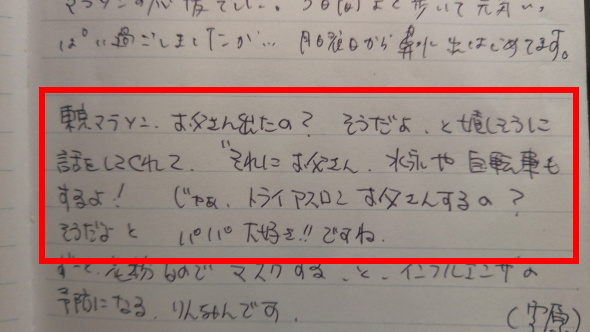 マラソンの応援でした。
ぱい過ごしましたが… 月曜日から鼻水出はじめてます。
東京マラソン、お父さん出たの？ そうだよ、と嬉しそうに
話をしてくれて、"それにお父さん、水泳や自転車も
するよ！ じゃぁ、トライアスロンお父さんするの？
そうだよと パパ大好き!!ですね。
ずーと なので マスクする、と、インフルエンザの
予防になる、りんちゃんです。